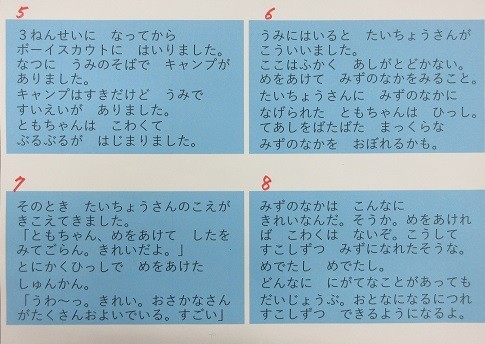 5
３ねんせいに　なってから
ボーイスカウトに　はいりました。
なつに　うみのそばで　キャンプが
ありました。
キャンプはすきだけど　うみで
すいえいが　ありました。
ともちゃんは　こわくて
ぶるぶるが　はじまりました。
6
うみにはいると　たいちょうさんが
こういいました。
ここはふかく　あしがとどかない。
めをあけて　みずのなかをみること。
たいちょうさんに　みずのなかに
なげられた　ともちゃんは　ひっし。
てあしをばたばた　まっくらな
みずのなかを　おぼれるかも。
7
そのとき　たいちょうさんのこえが
きこえてきました。
「ともちゃん、めをあけて　したを
みてごらん。きれいだよ。」
とにかくひっしで　めをあけた
しゅんかん。
「うわ〜っ。きれい。おさかなさん
がたくさんおよいでいる。すごい」
8
みずのなかは　こんなに
きれいなんだ。そうか。めをあけれ
ば　こわくは　ないぞ。こうして
すこしずつ　みずになれたそうな。
めでたし　めでたし。
どんなに　にがてなことがあっても
だいじょうぶ。おとなになるにつれ
すこしずつ　できるようになるよ。